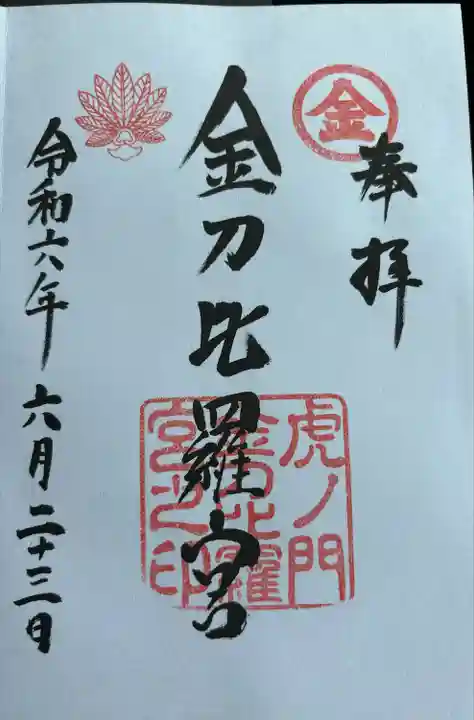 金
奉拝
金刀比羅宮
虎ノ門
金刀比羅
宮之印
令和六年六月二十三日